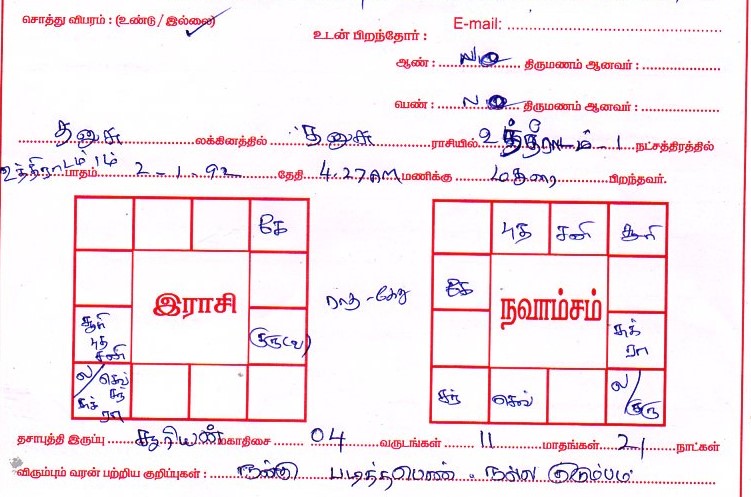 சொத்து விபரம் : (உண்டு / இல்லை)
E-mail:
உடன் பிறந்தோர் :
ஆண் : NO திருமணம் ஆனவர் :
பெண் : NO திருமணம் ஆனவர் :
தனுசு லக்கினத்தில் தனுசு ராசியில் உத்திராடம் - 1 நட்சத்திரத்தில்
உத்திராடம் 1ம் பாதம் 2-1-92 தேதி 4.27AM மணிக்கு மதுரை பிறந்தவர்.
கே
இராசி
சூரி
புத
சனி
குரு (வ)
ல/
செவ்
சந்
சுக்
ரா
ராகு - கேது
புத சனி சூரி
கே
நவாம்சம்
சுக்
ரா
சந் செவ் ல/
குரு
தசாபுத்தி இருப்பு : சூரியன் மகாதிசை 04 வருடங்கள் 11 மாதங்கள் 21 நாட்கள்
விரும்பும் வரன் பற்றிய குறிப்புகள் : நன்கு படித்த பெண். நல்ல குடும்பம்